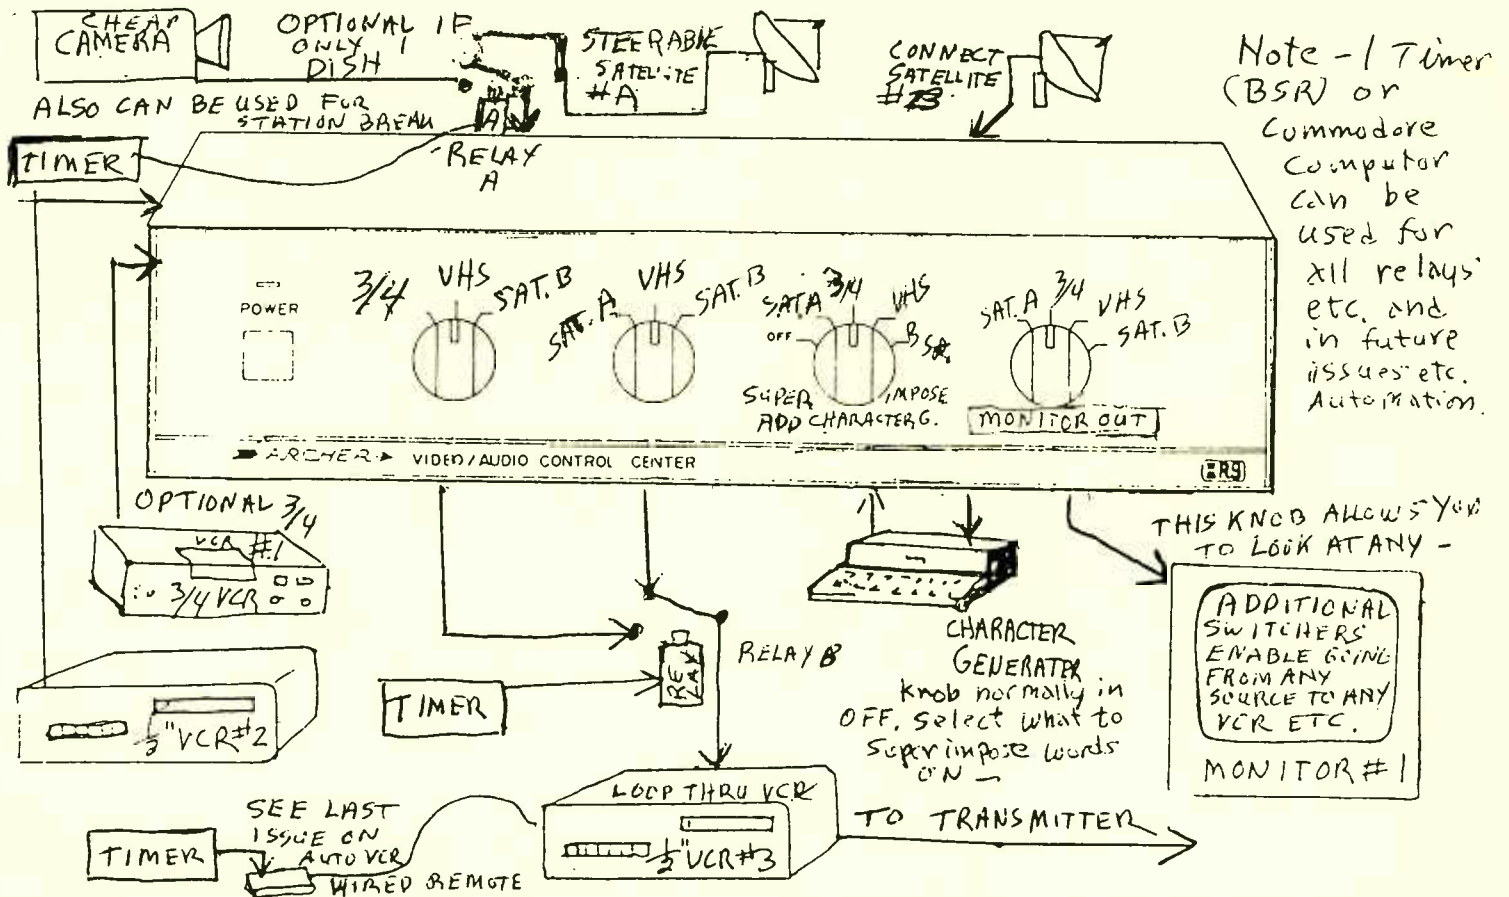 CHEAP
CAMERA
OPTIONAL IF
ONLY 1
DISH
STEERABLE
SATELLITE
#A
CONNECT
SATELLITE
#B
Note - 1 Timer
(BSR) or
Commodore
Computor
can be
used for
all relays
etc. and
in future
issues etc.
Automation.
ALSO CAN BE USED FOR
STATION BREAK
A
RELAY
A
TIMER
POWER
3/4 VHS SAT. B
SAT. A VHS SAT. B
OFF SAT A 3/4 VHS B SAT.
SUPER IMPOSE
ADD CHARACTER G.
SAT. A 3/4 VHS SAT. B
MONITOR OUT
ARCHER VIDEO/AUDIO CONTROL CENTER
OPTIONAL 3/4
VCR #1
3/4 VCR
1/2" VCR #2
TIMER
RELAY
RELAY B
CHARACTER
GENERATER
Knob normally in
OFF. Select what to
Superimpose words
ON -
THIS KNOB ALLOWS YOU
TO LOOK AT ANY -
ADDITIONAL
SWITCHERS
ENABLE GOING
FROM ANY
SOURCE TO ANY
VCR ETC.
MONITOR #1
TIMER
SEE LAST
ISSUE ON
AUTO VCR
WIRED REMOTE
LOOP THRU VCR
1/2" VCR #3
TO TRANSMITTER